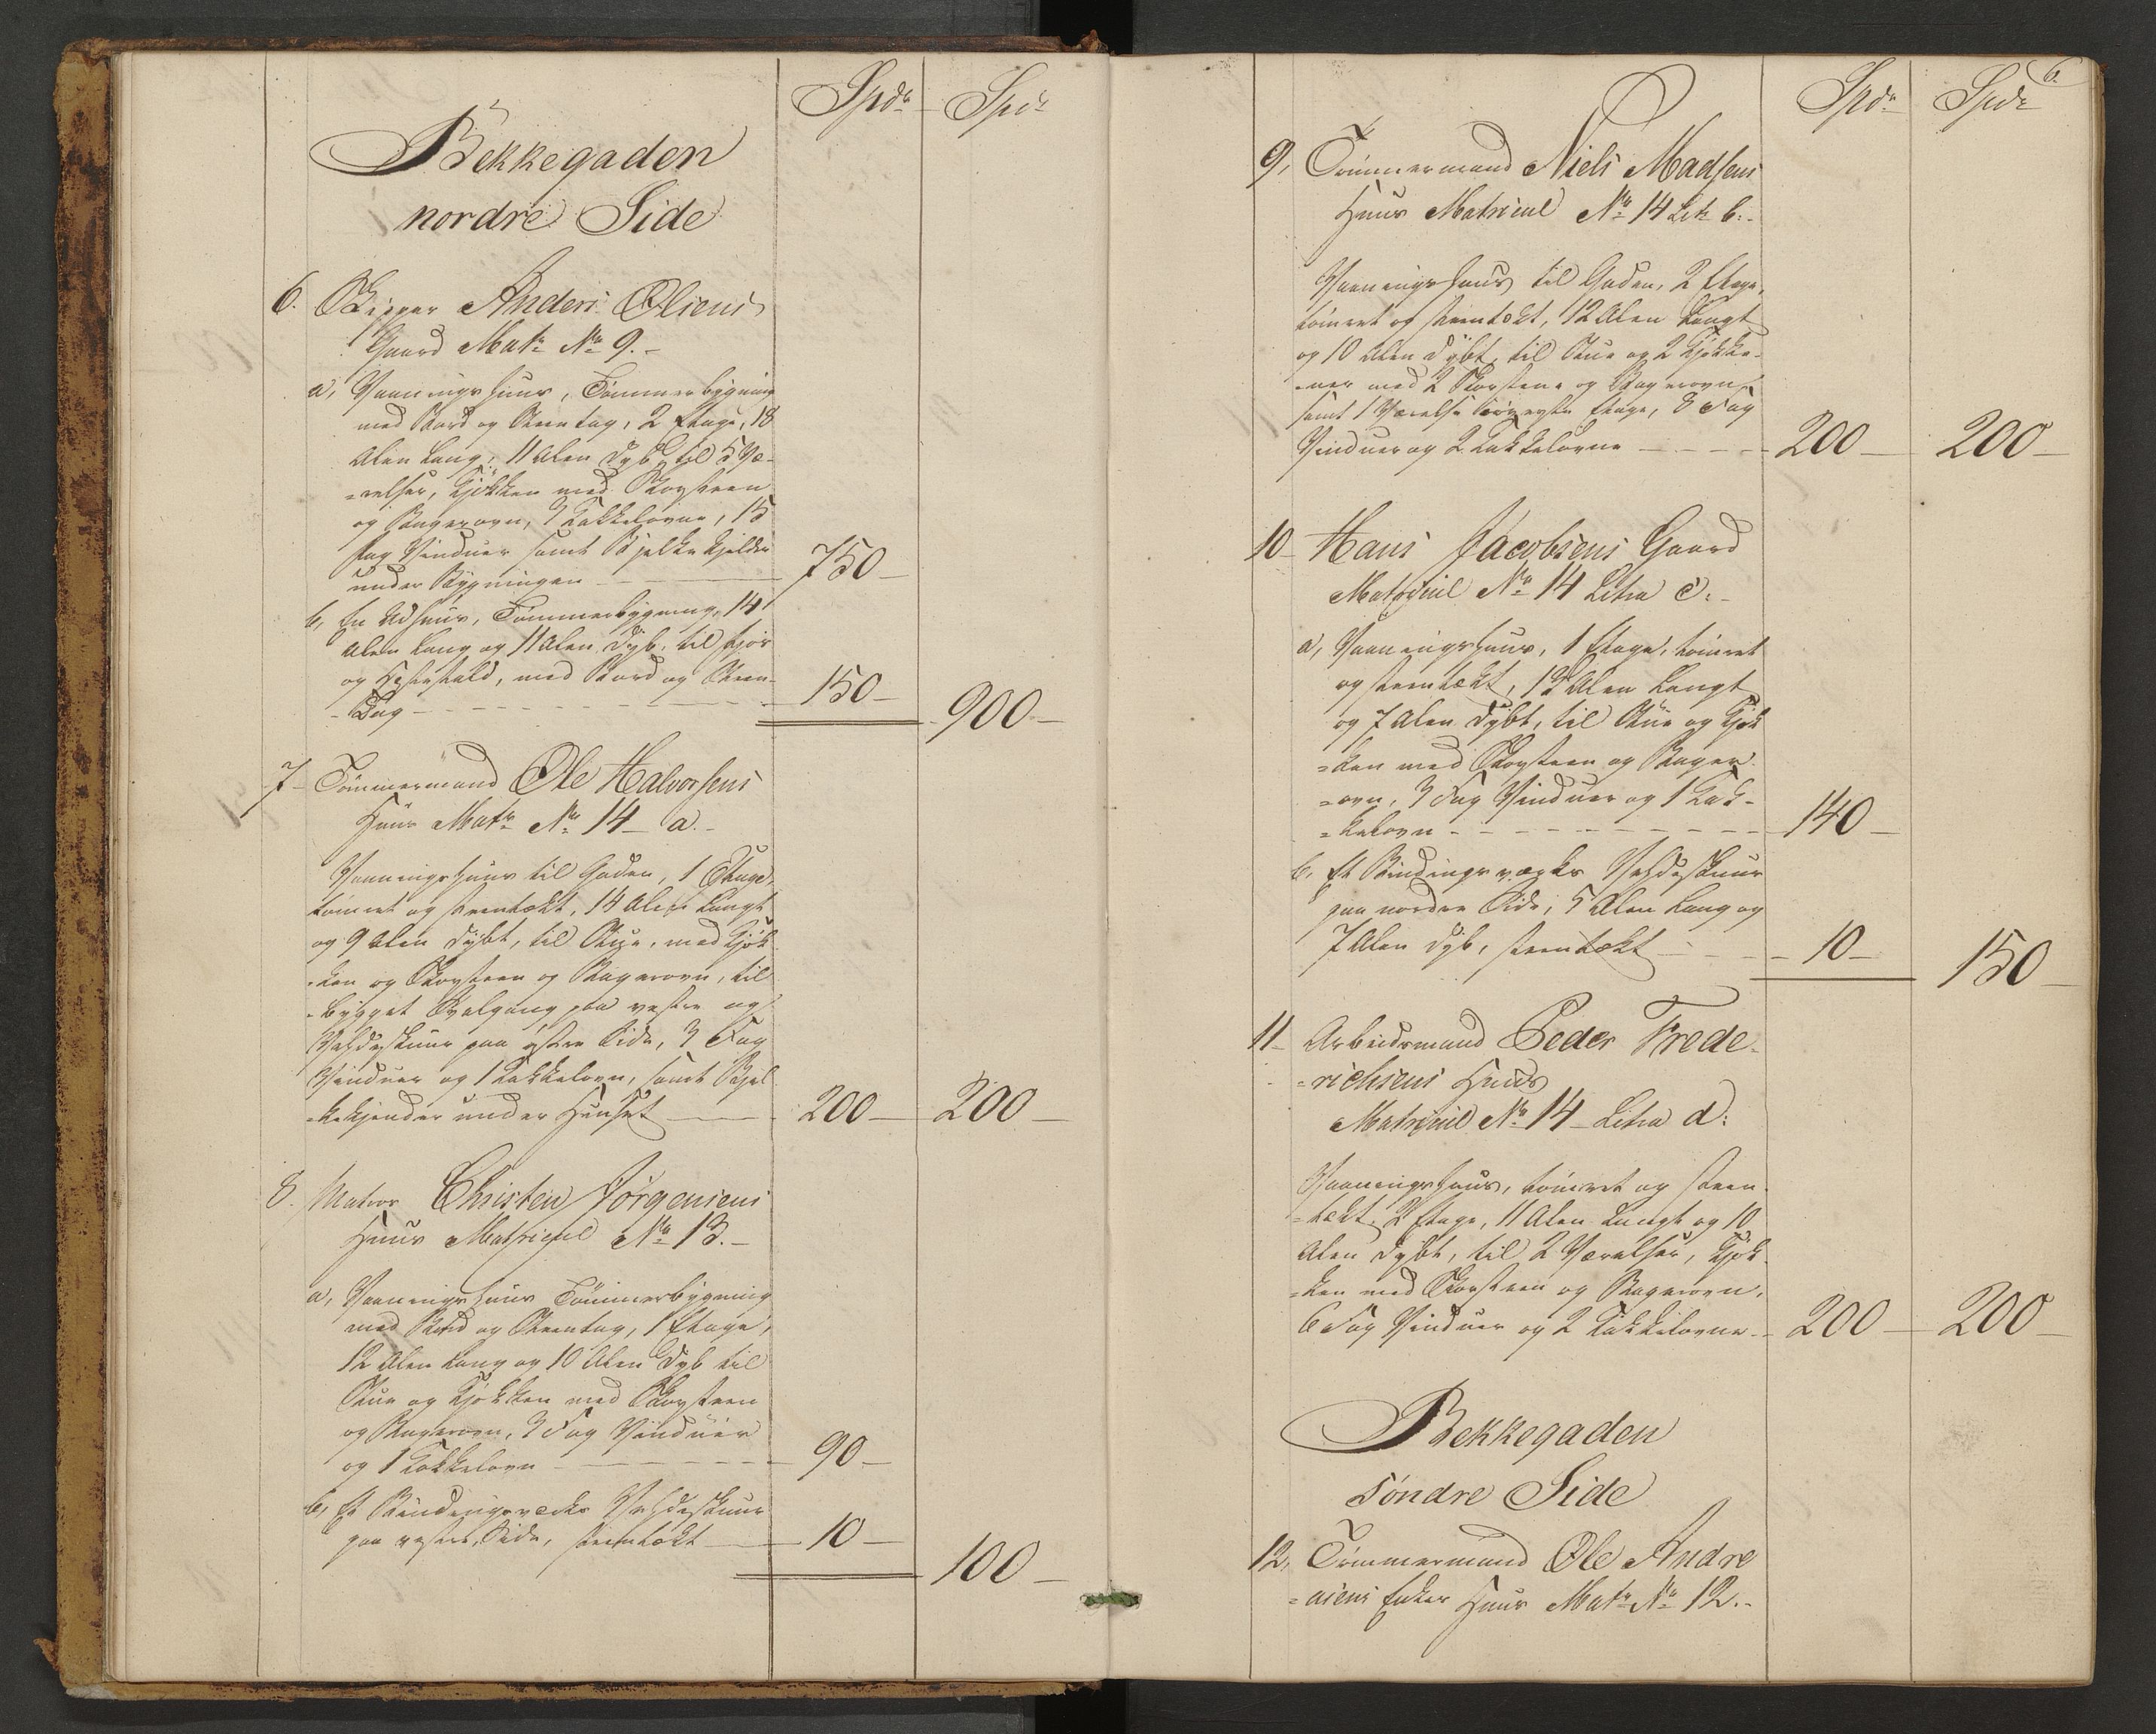 Spdr Spdr
Bekkegaden
nordre Side
6. Skipper Anders Olsens
Gaard Matr No 9.-
a, Vaaningshuus, Tømmerbygning
med Bord og Steentag, 2 Etage, 18
Alen lang, 11 Alen dyb, til 5 Væ-
=relser, Kjøkken med Skorsteen
og Bagerovn, 3 Kakkelovne, 15
fag Vinduer samt Bjelkekjelder
under Bygningen - 750-
b, En Udhuus, Tømmerbygning, 14
Alen lang og 11 Alen dyb, til Fjøs
og Hestestald, med Bord og Steen-
-Tag - 150- 900-
7- Tømmermand Ole Halvorsens
Huus Matr No 14 - a.-
Vaaningshuus til Gaden, 1 Etage,
tømret og steentækt, 14 Alen langt
og 9 Alen dybt, til Stue, med Kjøk-
-ken og Skorsteen og Bagerovn, til
-bygget Svalgang paa vestre og
Vedskuur paa østre Side, 3 Fag
Vinduer og 1 Kakkelovn, samt Bjel-
-kekjender under Huuset - 200- 200-
8. Matros Christen Jörgensens
Huus Matricul No 13.-
a, Vaaningshuus Tømmerbygning
med Bord og Steentag, 1 Etage,
12 Alen lang og 10 Alen dyb til
Stue og Kjøkken med Skorsteen
og Bagerovn, 3 Fag Vinduer
og 1 Kakkelovn - 90-
b, Et Bindingsværks Vedskuur
paa vestre Side, steentækt - 10- 100-
6.
Spdr Spdr
9, Tømmermand Niels Madsens
Huus Matricul No 14 Litr b.-
Vaaningshuus til Gaden, 2 Etage,
tømret og steentækt, 12 Alen langt
og 10 Alen dybt, til Stue og 2 Kjøkke-
-ner med 2 Skorstene og Bagerovn,
samt 1 Værelse i øverste Etage, 8 Fag
Vinduer og 2 Kakkelovne - 200- 200-
10- Hans Jacobsens Gaard
Matricul No 14 Litra c.-
a, Vaaningshuus, 1 Etage, tømret
og steentækt, 12 Alen langt
og 7 Alen dybt, til Stue og Kjøk
=ken med Skorsteen og Bager-
=ovn, 3 Fag Vinduer og 1 Kak-
=kelovn - 140-
b, Et Bindingsværks Vedskuur
paa nordre Side, 5 Alen lang og
7 Alen dyb, steentækt - 10- 150-
11- Arbeidsmand Peder Frede-
=richsens Huus
Matricul No 14 - Litra d:
Vaaningshuus, tømret og steen-
=tækt, 2 Etage, 11 Alen langt og 10
Alen dybt, til 2 Værelser, Kjøk-
=ken med Skorsteen og Bagerovn,
6 Fag Vinduer og 2 Kakkelovne.- 200- 200-
Bekkegaden
söndre Side
12, Tømmermand Ole Andre
=asens Enkes Huus Matr No 12.-